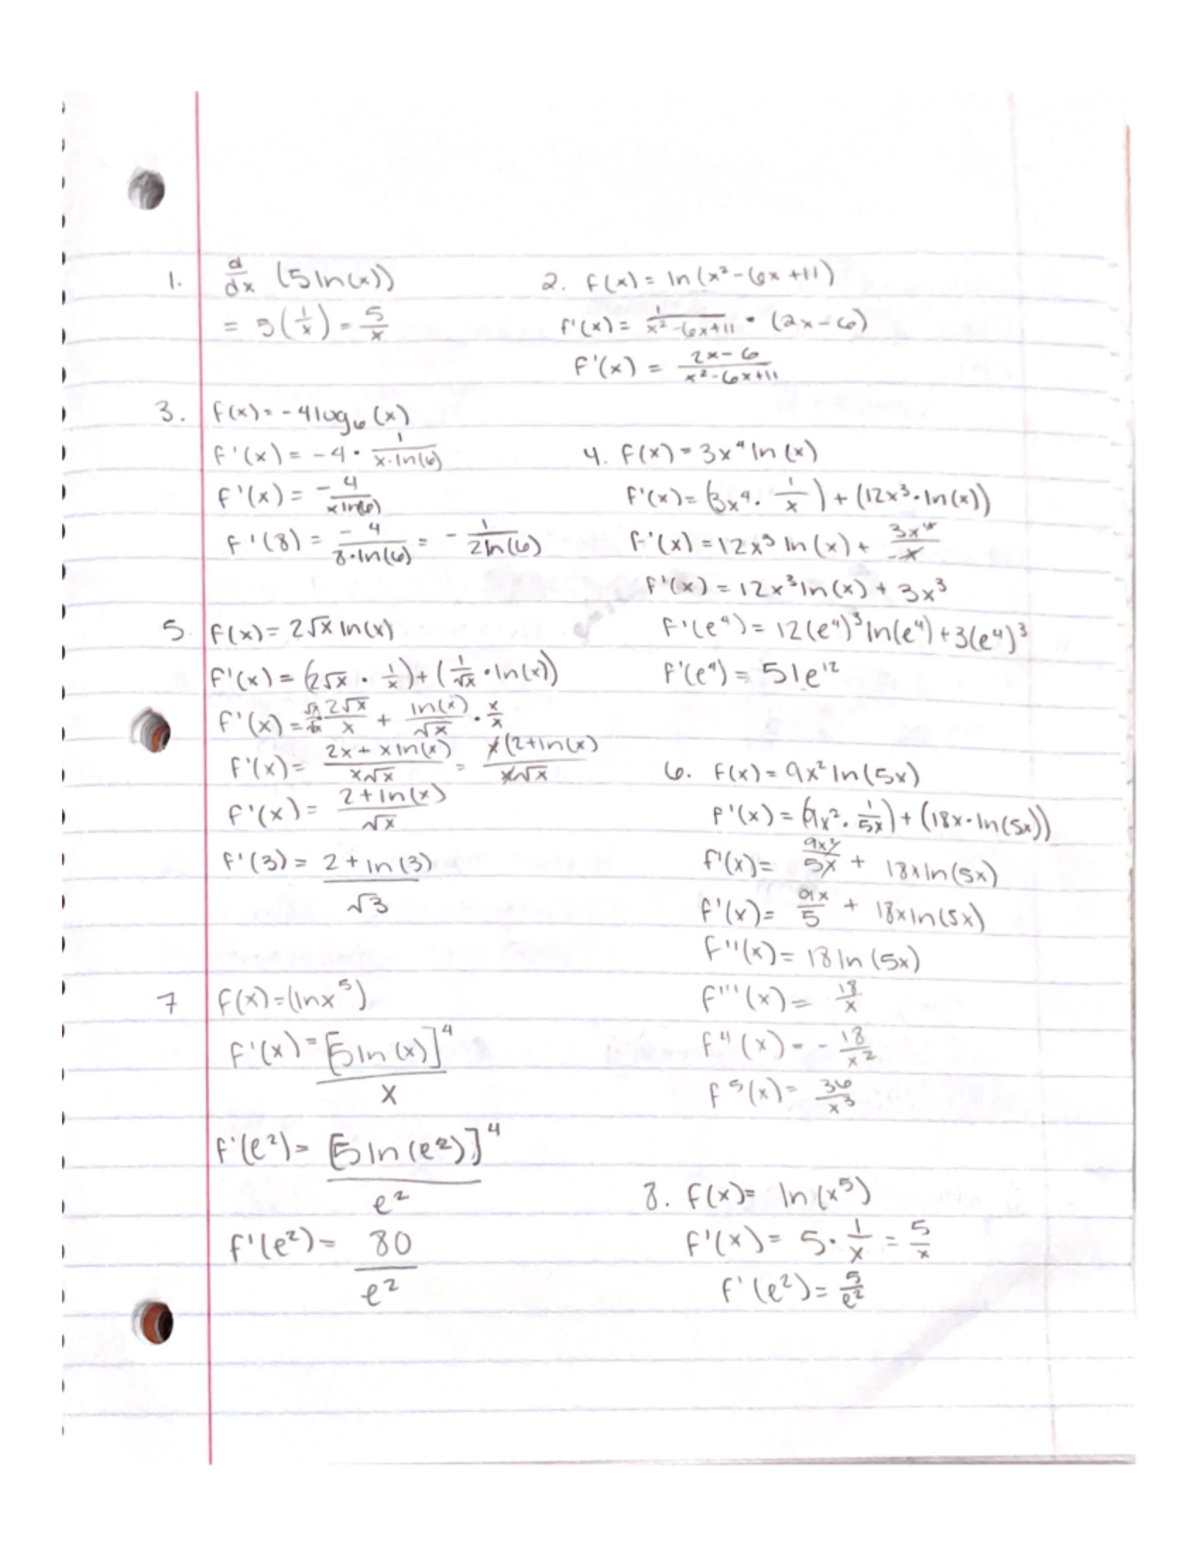 1. d/dx (5ln(x))
= 5(1/x) = 5/x
2. f(x) = ln(x²-6x+11)
f'(x) = 1/(x²-6x+11) • (2x-6)
f'(x) = (2x-6)/(x²-6x+11)
3. f(x) = -4log₆(x)
f'(x) = -4 • 1/(x·ln(6))
f'(x) = -4/(xln(6))
f'(8) = -4/(8·ln(6)) = -1/(2ln(6))
4. f(x) = 3x⁴ ln(x)
f'(x) = (3x⁴ · 1/x) + (12x³·ln(x))
f'(x) = 12x³ ln(x) + 3x⁴/x
f'(x) = 12x³ln(x) + 3x³
f'(e⁴) = 12(e⁴)³ln(e⁴)+3(e⁴)³
f'(e⁴) = 51e¹²
5. f(x) = 2√x ln(x)
f'(x) = (2√x · 1/x) + (1/√x • ln(x))
f'(x) = √x/√x 2√x/x + ln(x)/√x · x/x
f'(x) = (2x + xln(x))/(x√x) = x(2+ln(x)/(x√x)
f'(x) = (2+ln(x))/√x
f'(3) = (2+ln(3))/√3
6. f(x) = 9x² ln(5x)
f'(x) = (9x² · 1/5x) + (18x·ln(5x))
f'(x) = 9x²/5x + 18xln(5x)
f'(x) = 9x/5 + 18xln(5x)
f''(x) = 18ln(5x)
f'''(x) = 18/x
f⁴(x) = -18/x²
f⁵(x) = 36/x³
7 f(x) = (lnx⁵)
f'(x) = [5ln(x)]⁴/x
f'(e²) = [5ln(e²)]⁴/e²
f'(e²) = 80/e²
8. f(x) = ln(x⁵)
f'(x) = 5 · 1/x = 5/x
f'(e²) = 5/e²